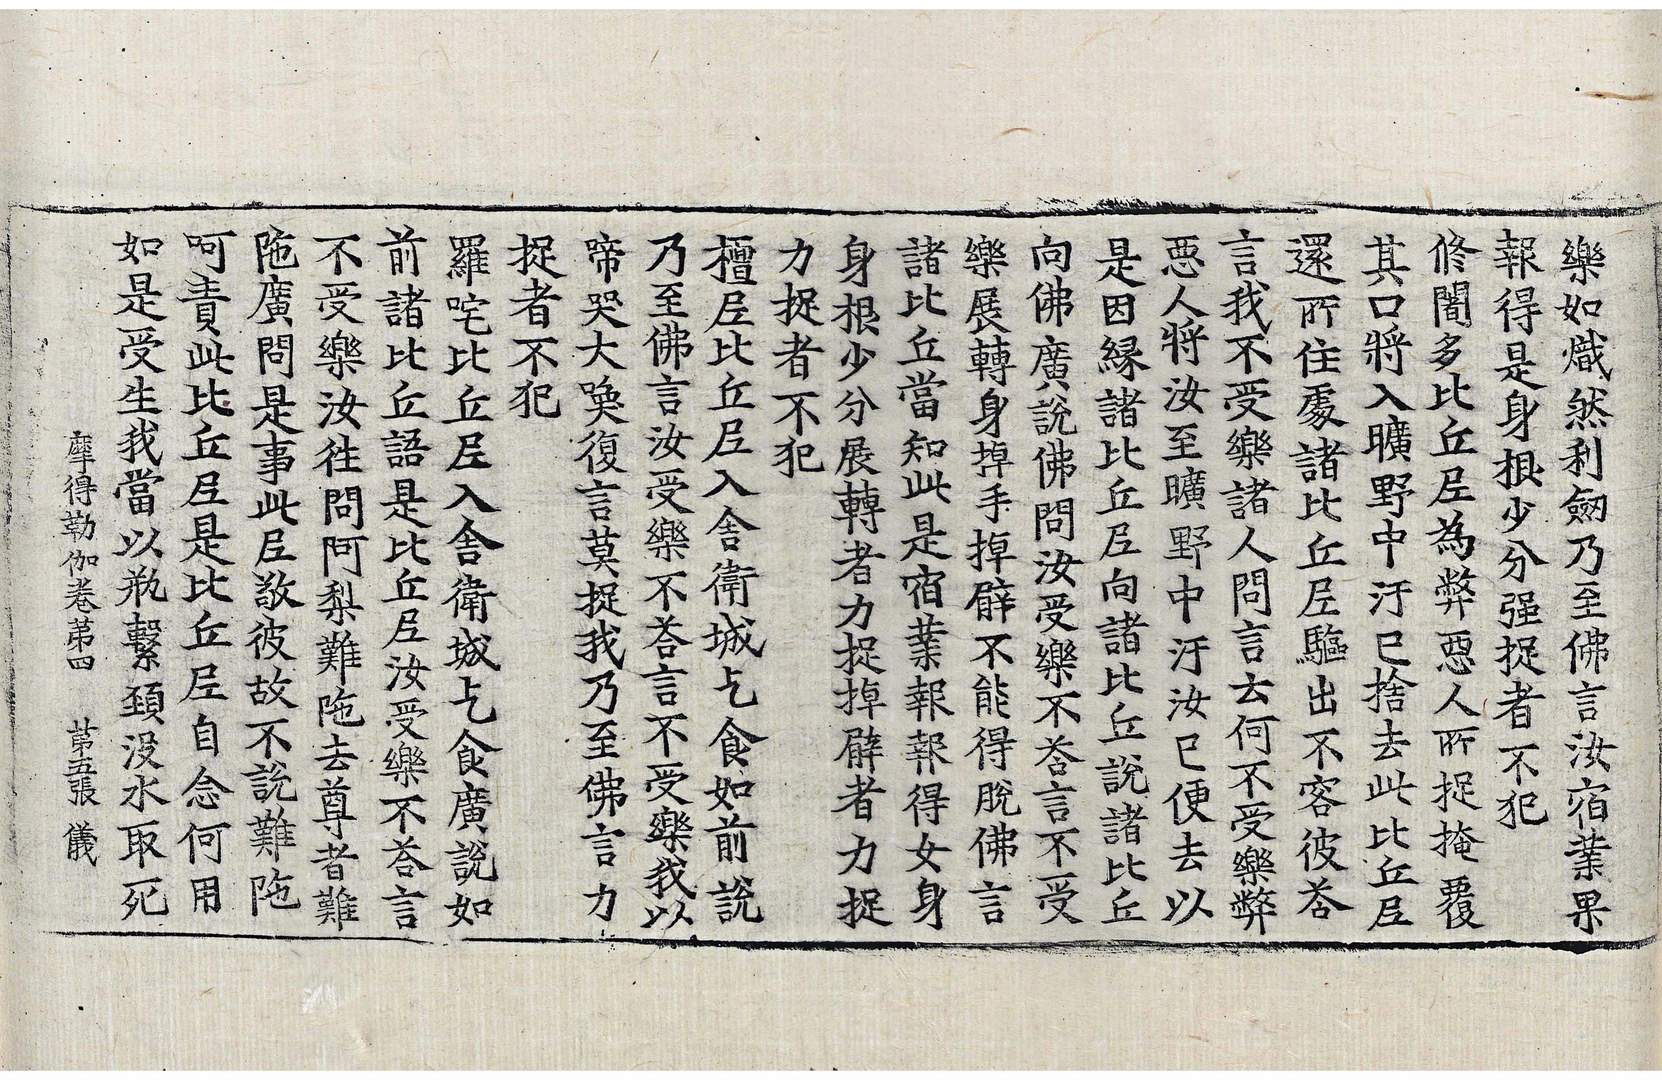 樂如熾然利劒乃至佛言汝宿業果
報得是身根少分强捉者不犯
修闇多比丘尼為弊惡人所捉掩覆
其口將入曠野中汙已捨去此比丘尼
還所住處諸比丘尼驅出不容彼荅
言我不受樂諸人問言云何不受樂弊
惡人將汝至曠野中汙汝已便去以
是因縁諸比丘尼向諸比丘說諸比丘
向佛廣說佛問汝受樂不荅言不受
樂展轉身掉手掉臂不能得脫佛言
諸比丘當知此是宿業報報得女身
身根少分展轉者力捉掉臂者力捉
力捉者不犯
檀尼比丘尼入舍衛城乞食如前說
乃至佛言汝受樂不荅言不受樂我以
啼哭大喚復言莫捉我乃至佛言力
捉者不犯
羅咤比丘尼入舍衛城乞食廣說如
前諸比丘語是比丘尼汝受樂不荅言
不受樂汝往問阿梨難陁去尊者難
陁廣問是事此尼敬彼故不說難陁
呵責此比丘尼是比丘尼自念何用
如是受生我當以瓶繫頚沒水取死
摩得勒伽卷苐四 苐五張 儀